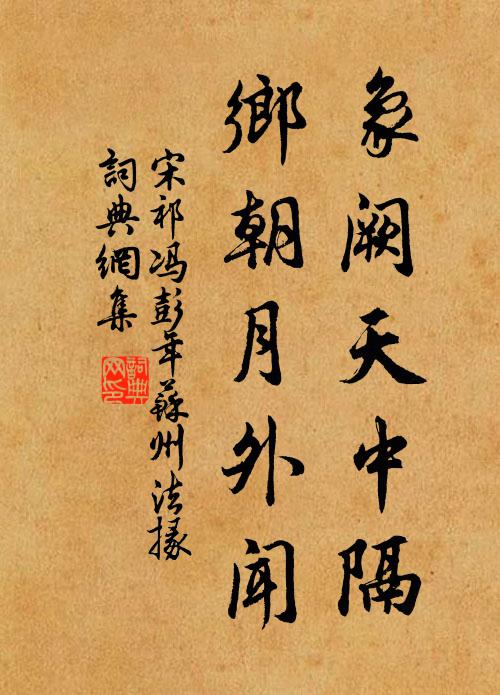 象阙天中隔
鄉朝月外闻
宋祁冯彭年蘇州法掾
詞典網集
詞典
网印